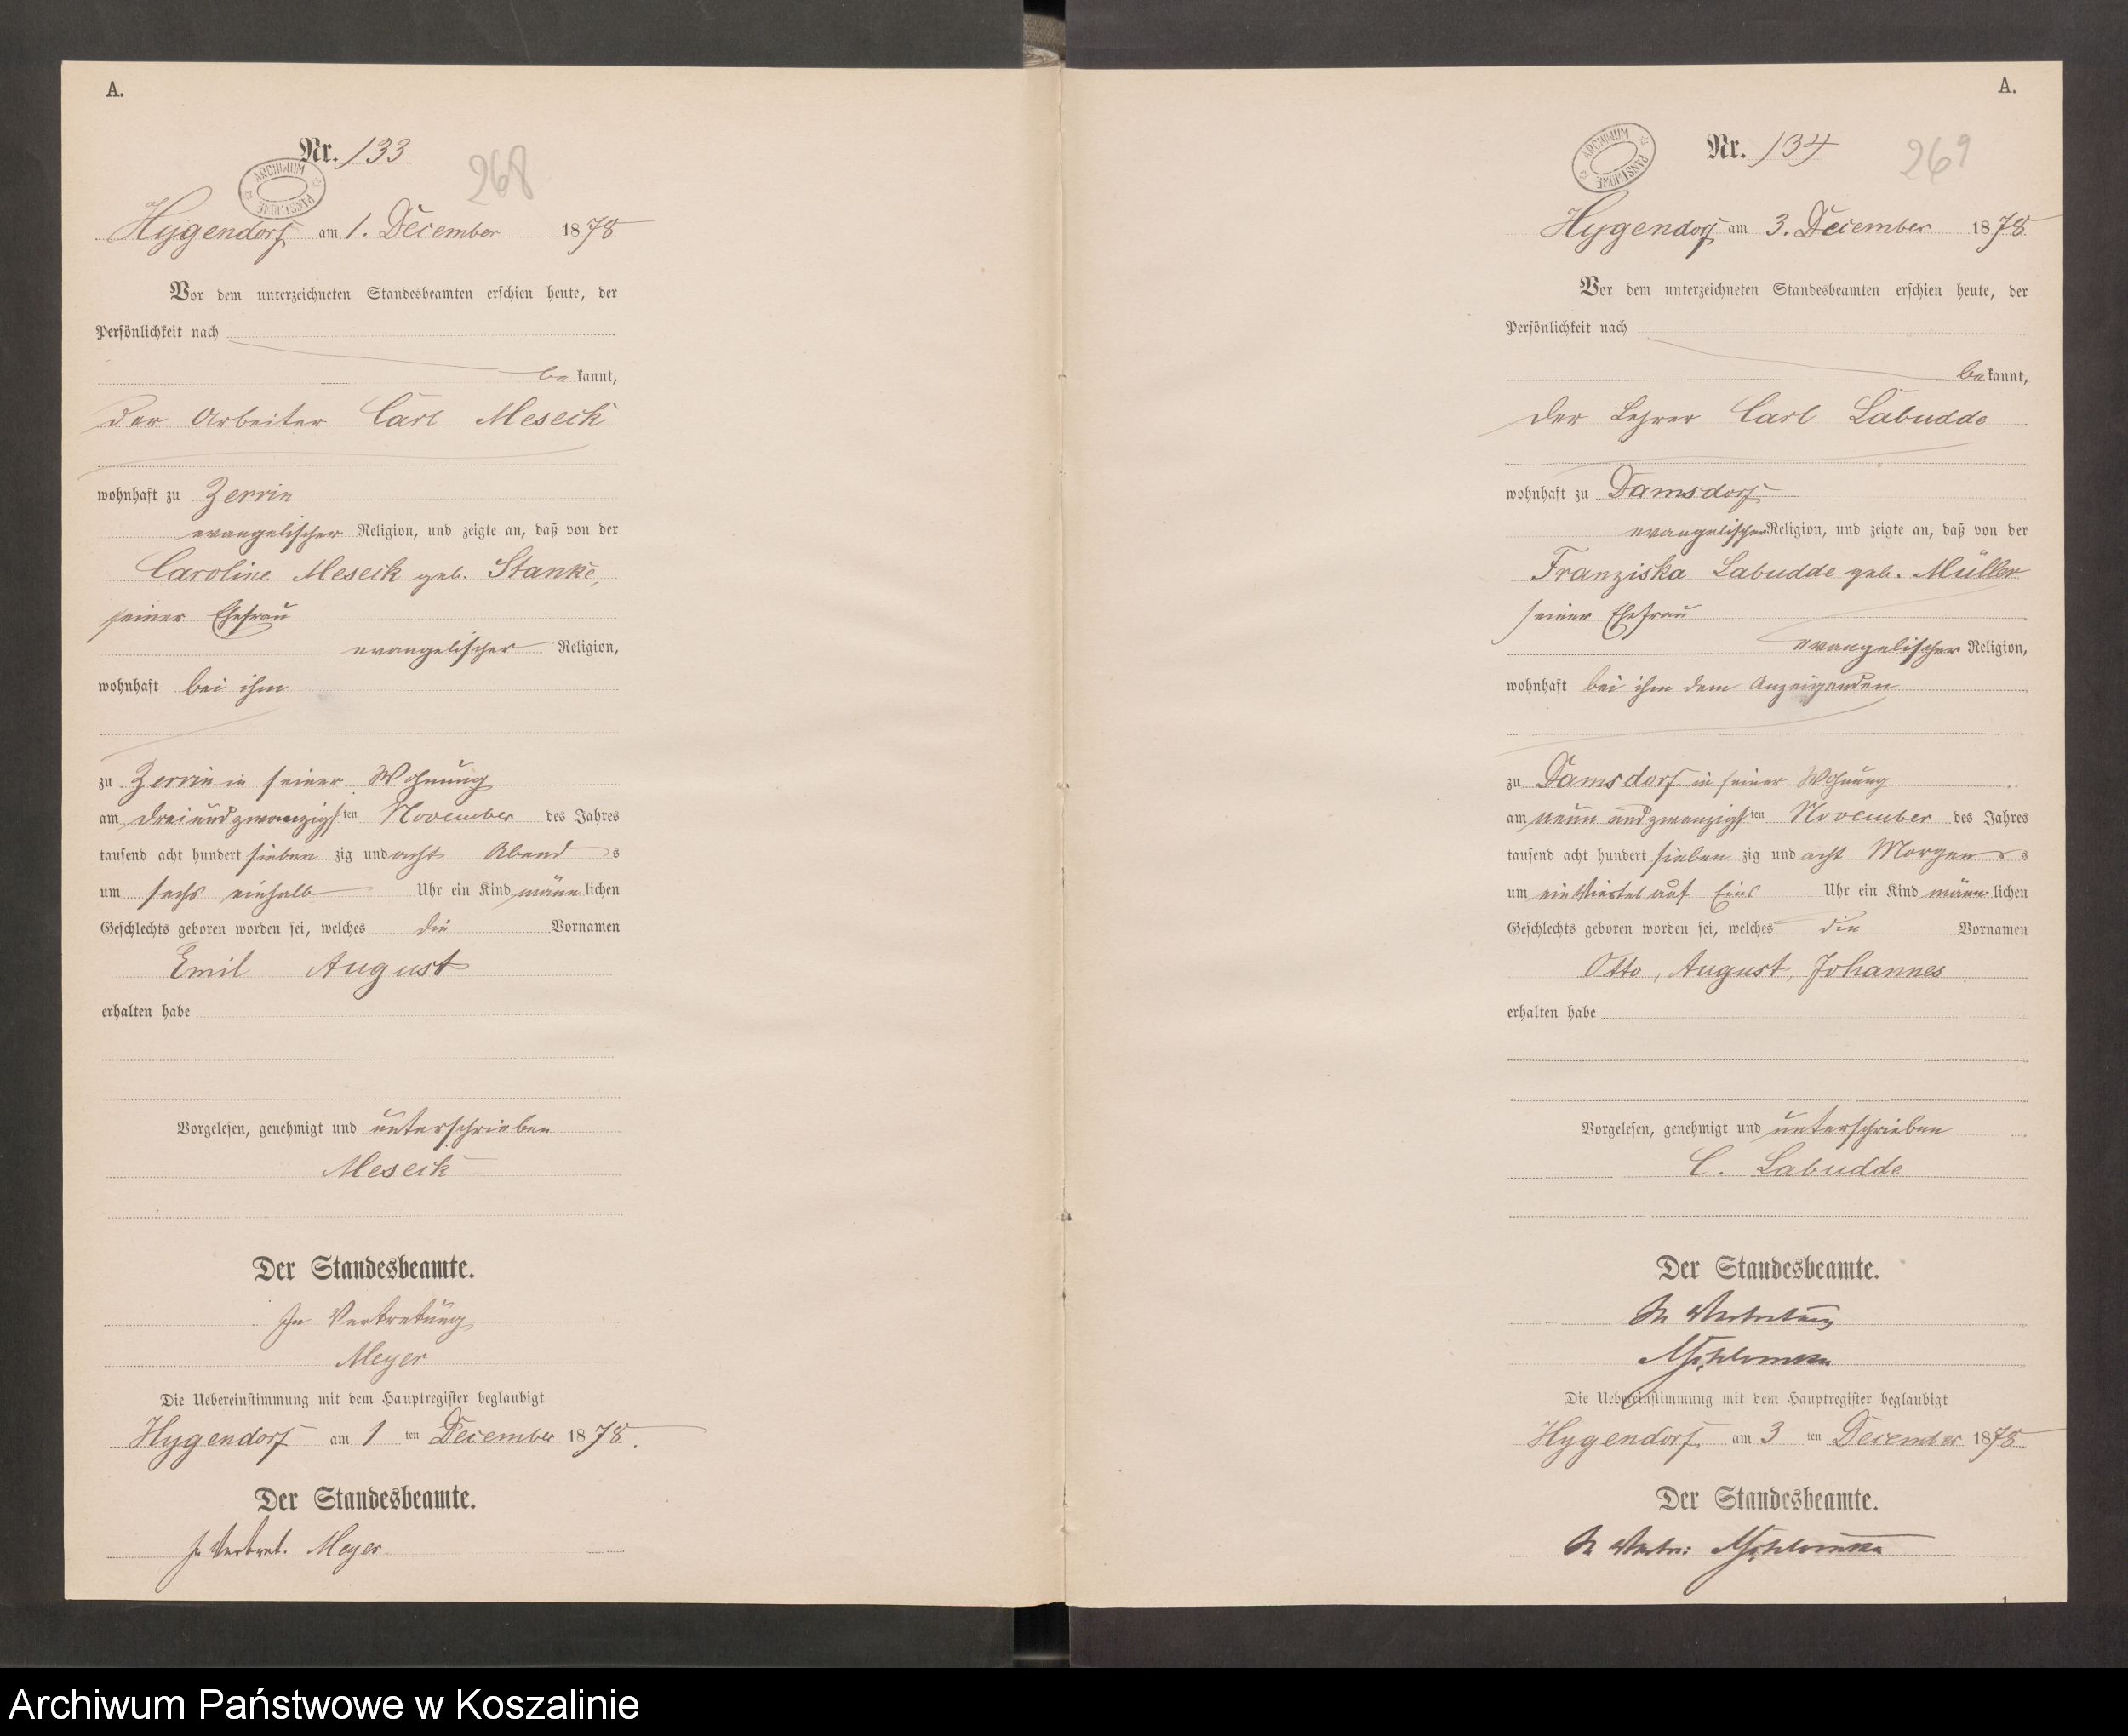 A.
Nr. 133
268
ARCHIWUM PAŃSTWOWE
Hygendorf am 1. December 1878
Vor dem unterzeichneten Standesbeamten erschien heute, der
Persönlichkeit nach
be kannt,
der Arbeiter Carl Meseck
wohnhaft zu Zerrin
evangelischer Religion, und zeigte an, daß von der
Caroline Meseck geb. Stanke,
seiner Ehefrau
evangelischer Religion,
wohnhaft bei ihm
zu Zerrin in seiner Wohnung
am dreiundzwanzigsten November des Jahres
tausend acht hundert sieben zig und acht Abend s
um sechs einhalb Uhr ein Kind männ lichen
Geschlechts geboren worden sei, welches die Vornamen
Emil August
erhalten habe
Vorgelesen, genehmigt und unterschrieben
Meseck
Der Standesbeamte.
In Vertretung
Meyer
Die Uebereinstimmung mit dem Hauptregister beglaubigt
Hygendorf am 1 ten December 1878.
Der Standesbeamte.
In Vertret. Meyer
A.
Nr. 134
269
ARCHIWUM PAŃSTWOWE
Hygendorf am 3. December 1878
Vor dem unterzeichneten Standesbeamten erschien heute, der
Persönlichkeit nach
be kannt,
der Lehrer Carl Labudde
wohnhaft zu Damsdorf
evangelischer Religion, und zeigte an, daß von der
Franziska Labudde geb. Müller
seiner Ehefrau
evangelischer Religion,
wohnhaft bei ihm dem Anzeigenden
zu Damsdorf in seiner Wohnung
am neun undzwanzigsten November des Jahres
tausend acht hundert sieben zig und acht Morgen s
um ein Viertel auf Eins Uhr ein Kind männ lichen
Geschlechts geboren worden sei, welches die Vornamen
Otto, August, Johannes
erhalten habe
Vorgelesen, genehmigt und unterschrieben
C. Labudde
Der Standesbeamte.
In Vertretung
Die Uebereinstimmung mit dem Hauptregister beglaubigt
Hygendorf am 3 ten December 1878
Der Standesbeamte.
In Vertr:
Archiwum Państwowe w Koszalinie